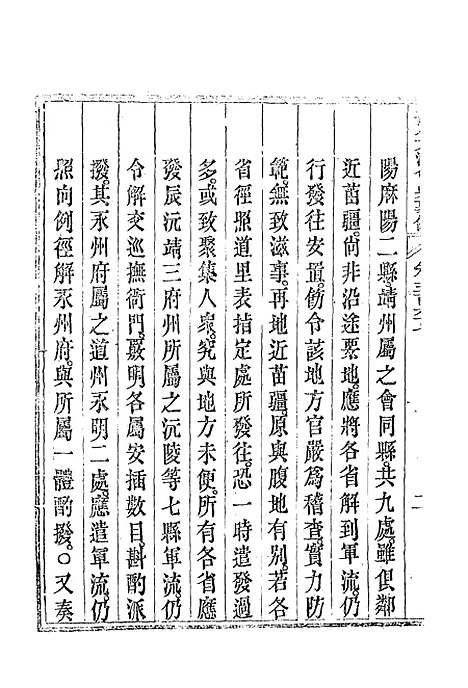 陽麻陽二縣。靖州屬之會同縣。共九處。雖俱鄰
近苗疆。尙非沿途要地。應將各省解到軍流。仍
行發往安置。飭令該地方官嚴爲稽查。實力防
範。無致滋事。再地近苗疆。原與腹地有別。若各
省徑照道里表指定處所發往。恐一時遣發過
多。或致聚集人衆。究與地方未便。所有各省應
發辰沅靖三府州所屬之沅陵等七縣軍流。仍
令解交巡撫衙門。覈明各屬安插數目。斟酌派
撥。其永州府屬之道州永明二處。應遣軍流。仍
照向例徑解永州府。與所屬一體酌撥。○又奏